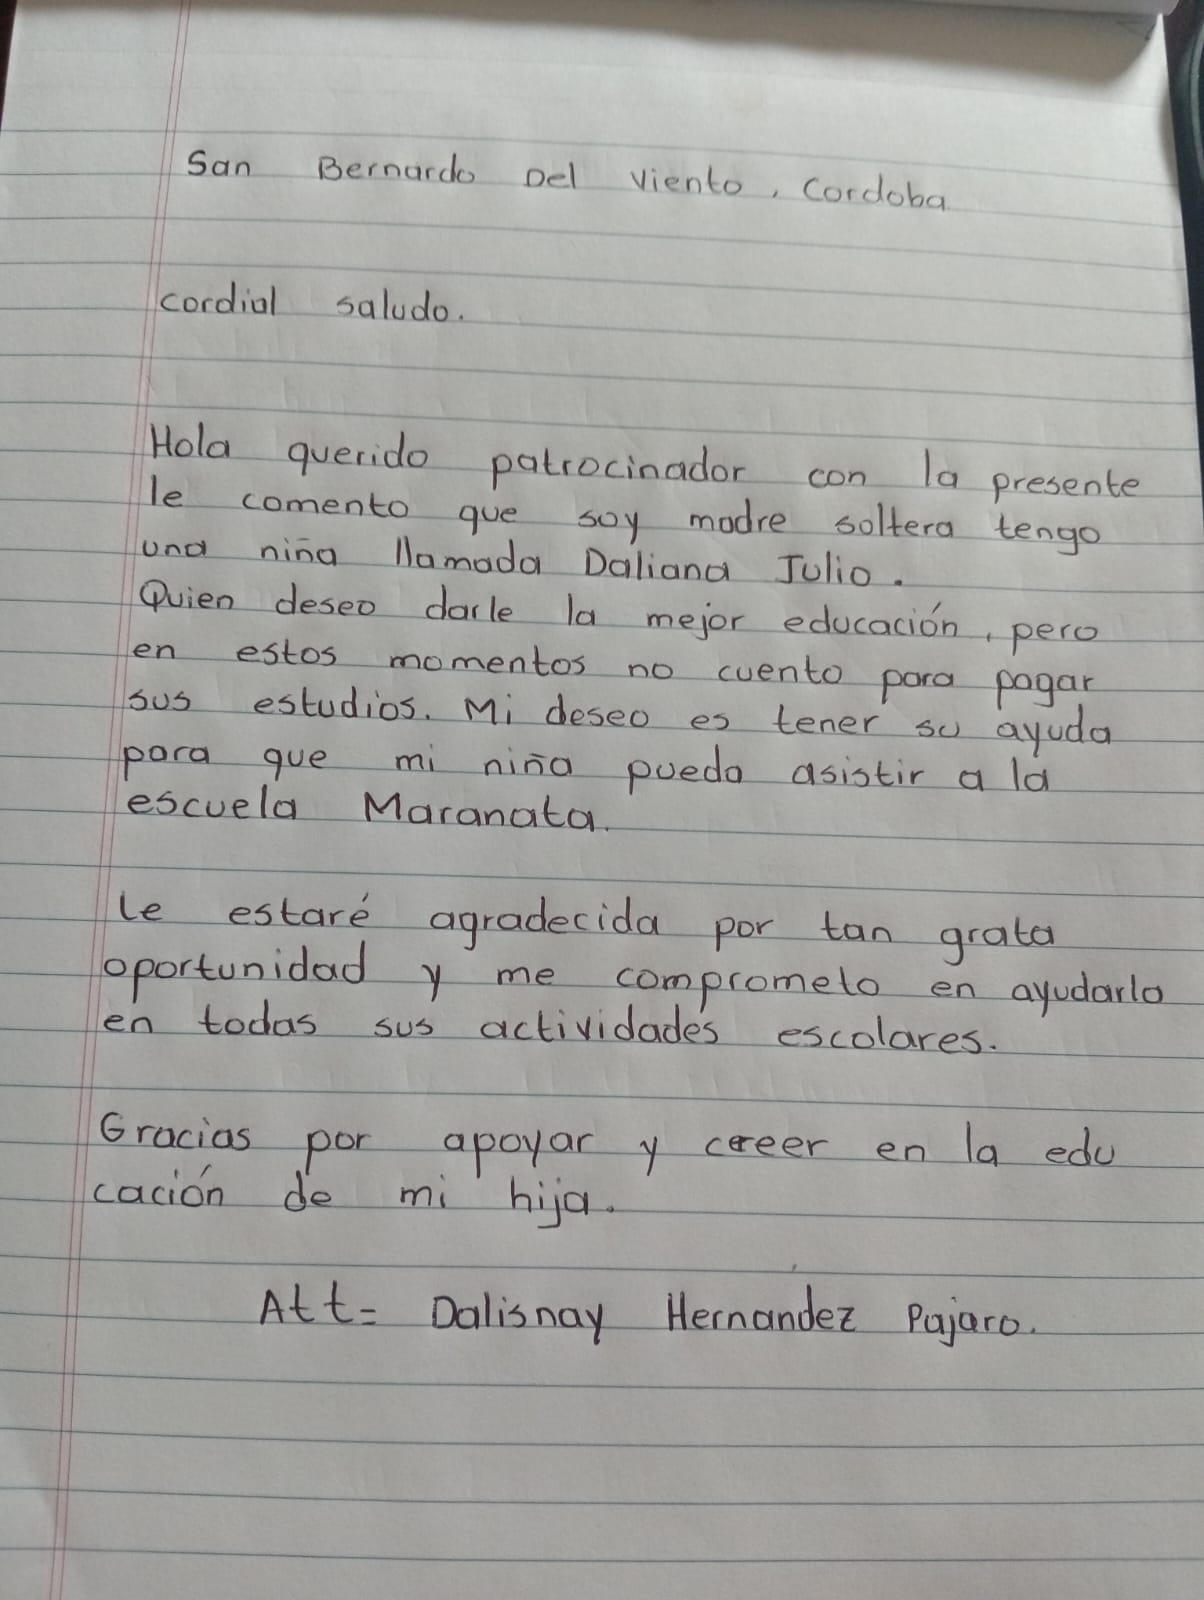 San Bernardo Del Viento, Cordoba
cordial saludo.
Hola querido patrocinador con la presente
le comento que soy madre soltera tengo
una niña llamada Daliana Julio.
Quien deseo darle la mejor educación, pero
en estos momentos no cuento para pagar
sus estudios. Mi deseo es tener su ayuda
para que mi niña pueda asistir a la
escuela Maranata.
Le estaré agradecida por tan grata
oportunidad y me comprometo en ayudarla
en todas sus actividades escolares.
Gracias por apoyar y creer en la edu
cación de mi hija.
Att= Dalisnay Hernandez Pajaro.